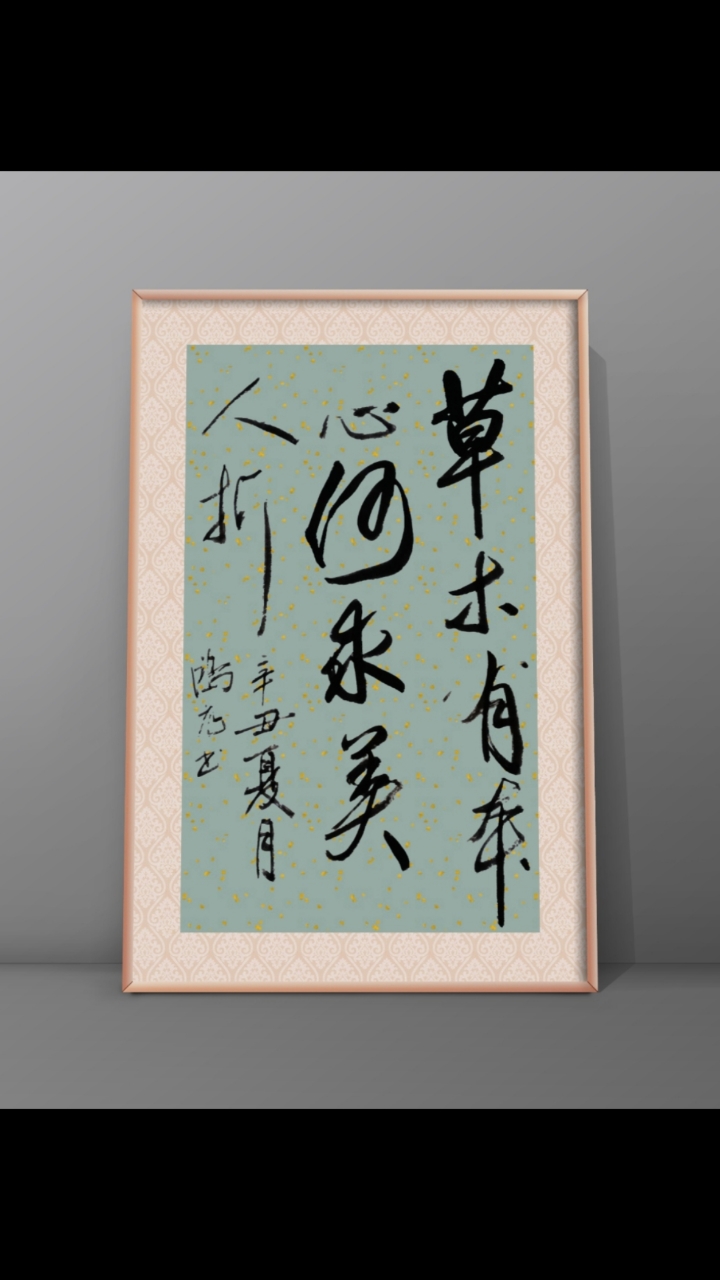 草木有本
心何求美
人折
辛丑夏月
书